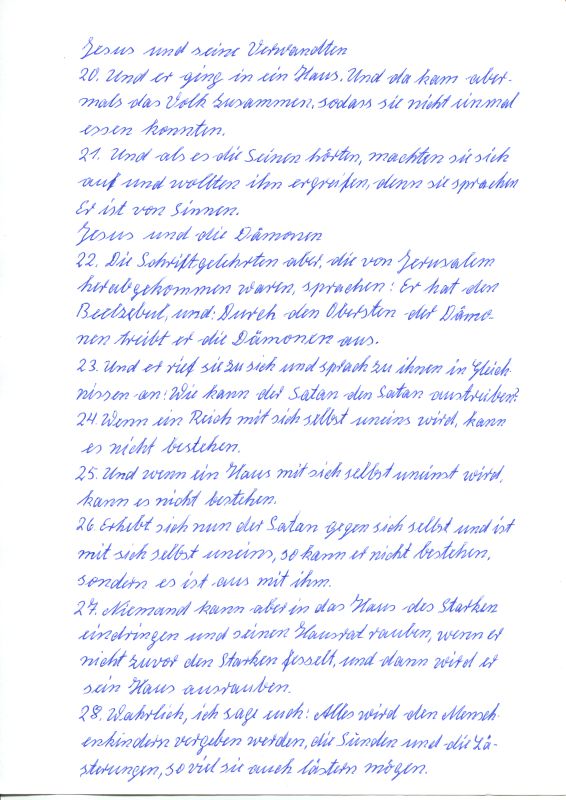 Jesus und seine Verwandten
20. Und er ging in ein Haus. Und da kam aber-
mals das Volk zusammen, sodass sie nicht einmal
essen konnten.
21. Und als es die Seinen hörten, machten sie sich
auf und wollten ihn ergreifen, denn sie sprachen
Er ist von Sinnen.
Jesus und die Dämonen
22. Die Schriftgelehrten aber, die von Jerusalem
herabgekommen waren, sprachen: Er hat den
Beelzebul, und: Durch den Obersten der Dämo-
nen treibt er die Dämonen aus.
23. Und er rief sie zu sich und sprach zu ihnen in Gleich
nissen an: Wie kann der Satan den Satan austreiben?
24. Wenn ein Reich mit sich selbst uneins wird, kann
es nicht bestehen.
25. Und wenn ein Haus mit sich selbst uneinst wird,
kann es nicht bestehen.
26. Erhebt sich nun der Satan gegen sich selbst und ist
mit sich selbst uneins, so kann er nicht bestehen,
sondern es ist aus mit ihm.
27. Niemand kann aber in das Haus des Starken
eindringen und seinen Hausrat rauben, wenn er
nicht zuvor den Starken fesselt, und dann wird er
sein Haus ausrauben.
28. Wahrlich, ich sage euch: Alles wird den Mensch
enkindern vergeben werden, die Sünden und die Lä-
sterungen, so viel sie auch lästern mögen.